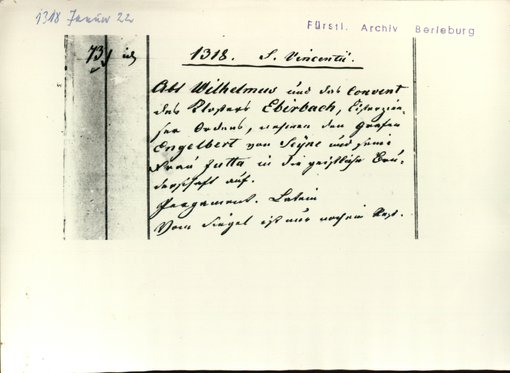 1318 Januar 22
Fürstl. Archiv Berleburg
73
1318. S. Vincentii.
Abt Wilhelmus und das Convent
des Klosters Ebirbach, Cisterzien-
ser Ordens, nehmen den Grafen
Engelbert von Seyne und seine
Frau Jutta in die geistliche Bru-
derschaft auf.
Pergament. Latein
Vom Siegel ist nur noch ein Rest.